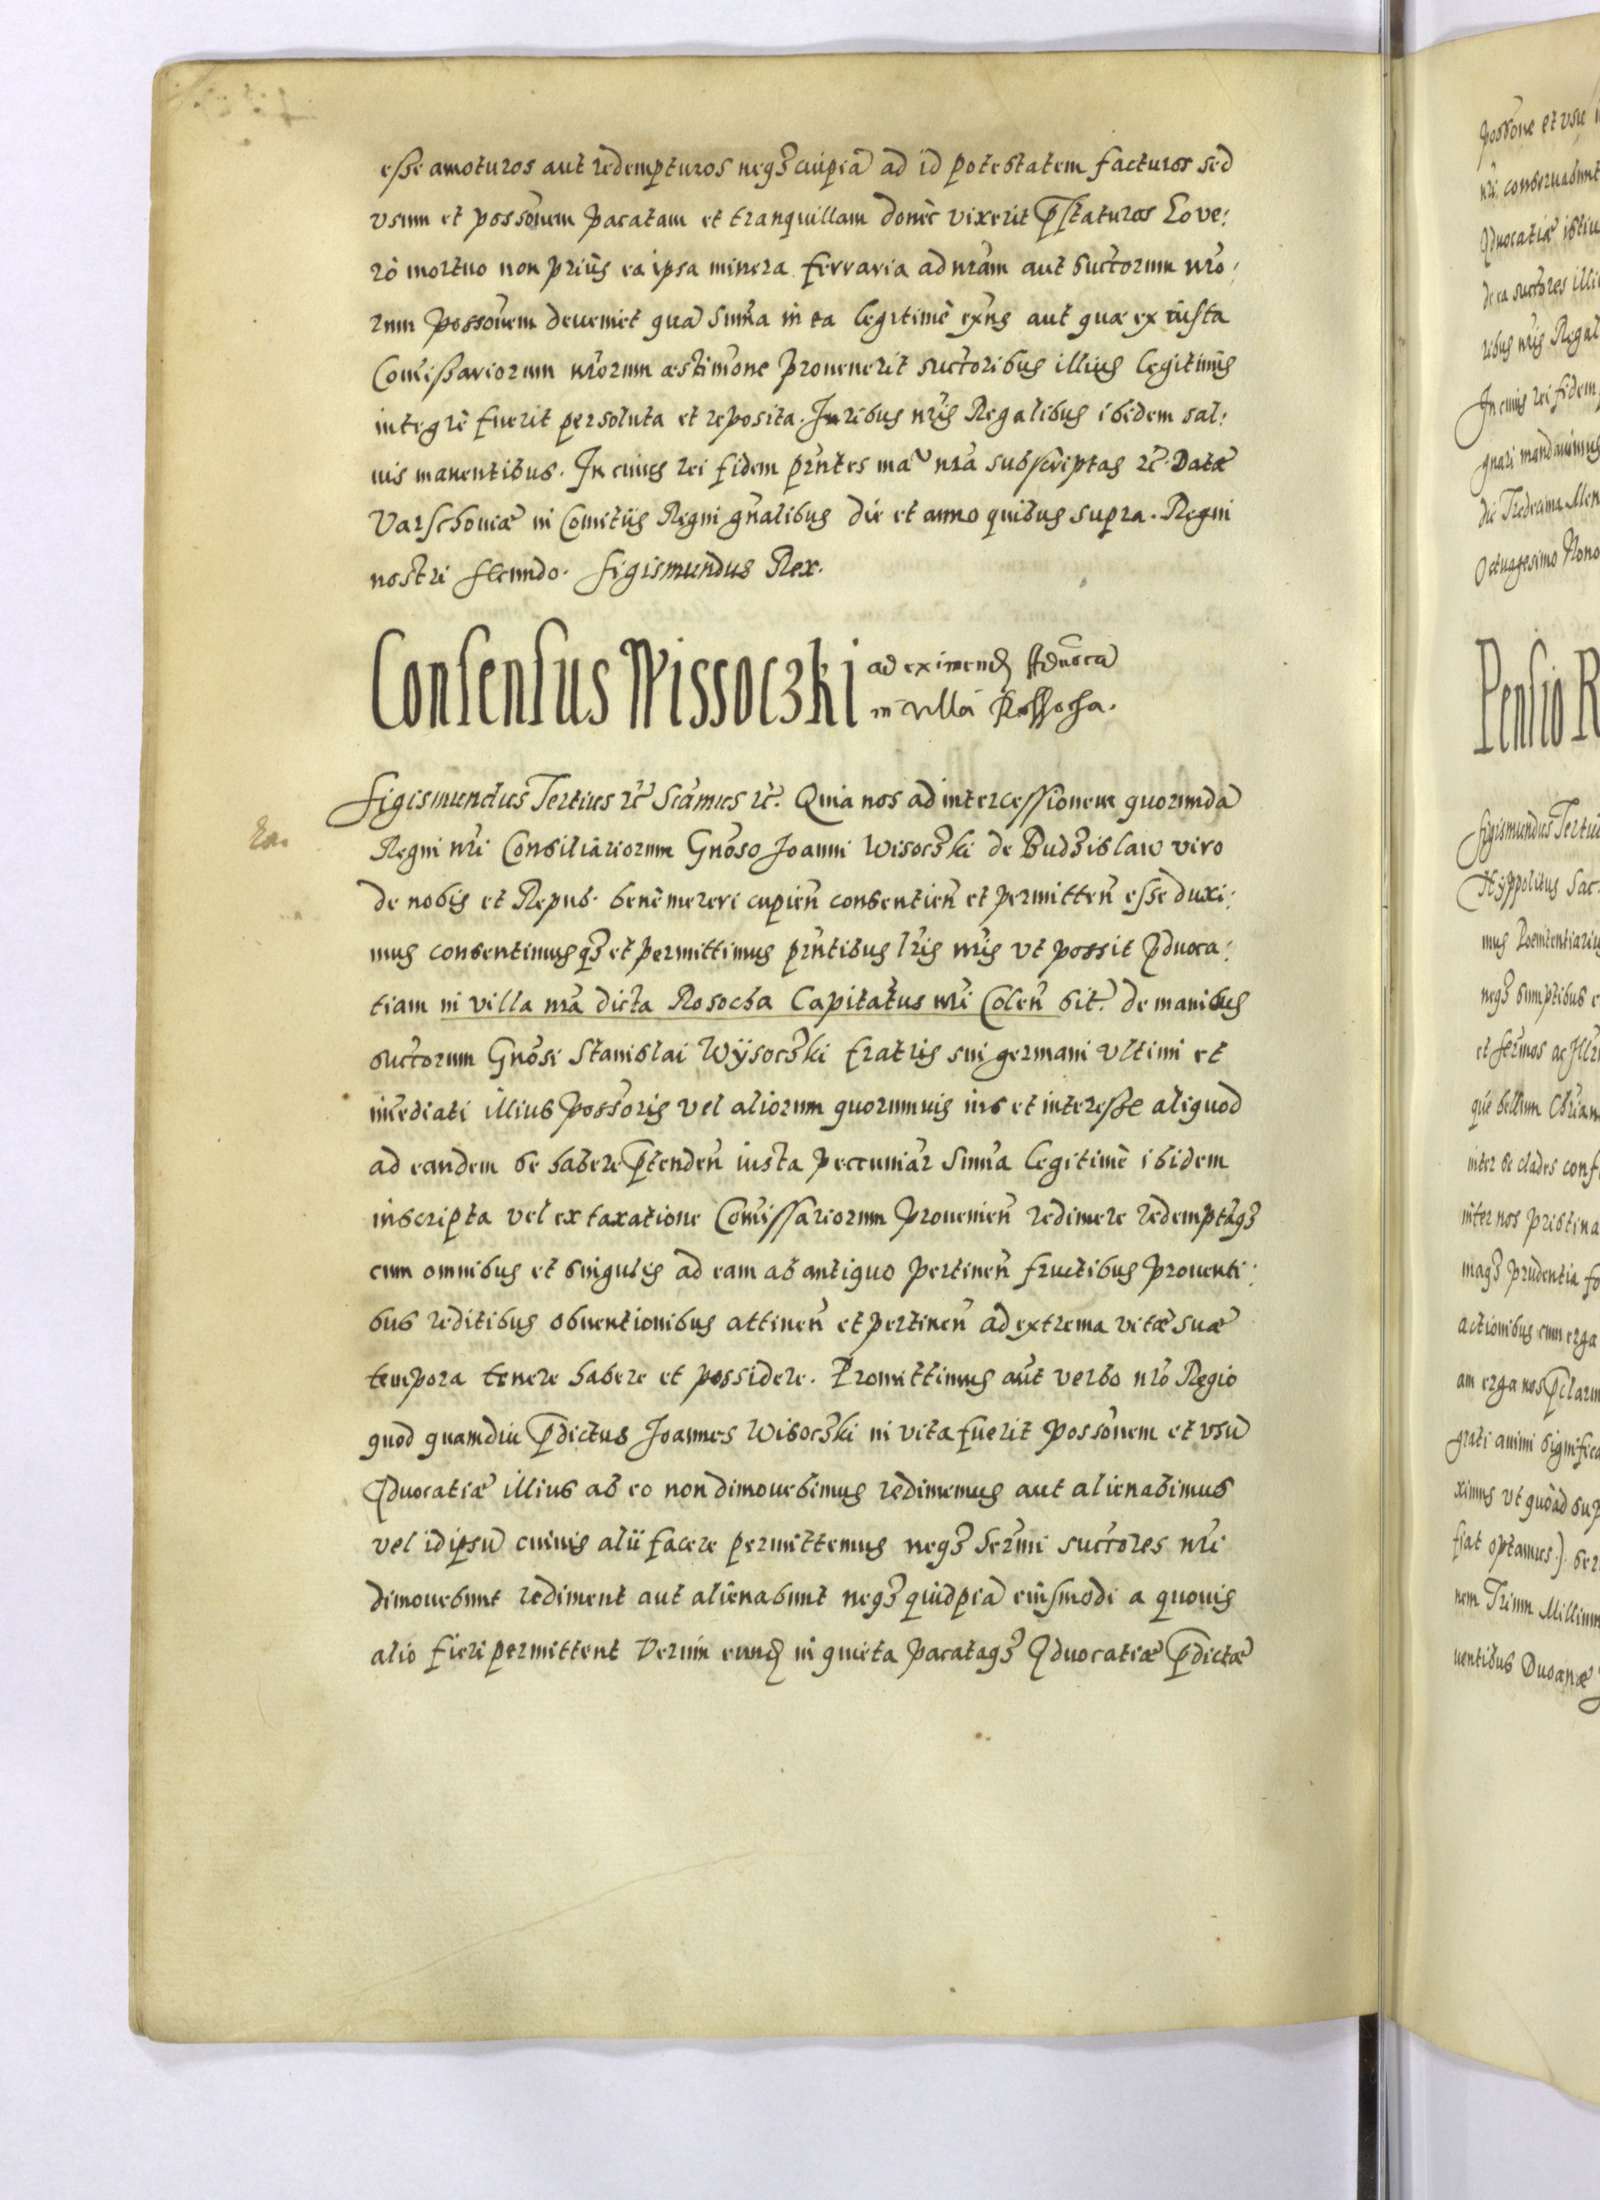 esse amoturos aut redempturos neqꝫ cuipiā ad id potestatem facturos sed
vsum et posso͠nem pacatam et tranquillam donèc vixerit p̄staturos Eo ve:
rò mortuo non priùs ea ipsa minera ferraria ad nr̄am aut suctorum nr̄o:
rum posso͠nem deueniet quā Sum̄a in ea legitimè exn̄s aut quæ ex iusta
Com̄issariorum nr̄orum æstimo͠ne prouenerit suctoribus illius legitimis
integrè fuerit persoluta et reposita. Juribus nr̄is Regalibus ibidem sal:
uis manentibus. In cuius rei fidem pr̄ntes manu nr̄a subscriptas rc̄. Datæ
Varschouiæ in Comitijs Regni gn̄alibus die et anno quibus supra. Regni
nostri secundo. Sigismundus Rex.
Consensus Wissoczki ad eximend Aduoca
in villa Rossocha.
Sigismundus Tertius rc̄ Sca͠mus rc̄. Quia nos ad intercessionem quorundā
Regni nr̄i Consiliariorum Gn̄oso Joanni Wisocꝫki de Budꝫislaw viro
de nobis et Repub. benè mereri cupien̄ consentien̄ et permitten̄ esse duxi:
mus consentimusqꝫ et permittimus pr̄ntibus lr̄is nr̄is vt possit Aduoca:
tiam in villa nr̄a dicta Rosocha Capitat͠us nr̄i Colen̄ sit. de manibus
suctorum Gn̄osi Stanislai Wÿsocꝫki fratris sui germani vltimi et
im̄ediati illius posso͠ris vel aliorum quorumuis ius et interesse aliquod
ad eandem se habere p̄tenden̄ iusta pecuniar Sum̄a legitimè ibidem
inscripta vel ex taxatione Com̄issariorum prouenien̄ redimere redemptāqꝫ
cum omnibus et singulis ad eam ab antiquo pertinen̄ fructibus prouenti:
bus reditibus obuentionibus attinen̄ et pertinen̄ ad extrema vitæ suæ
tempora tenere habere et possidere. Promittimus aūt verbo nr̄o Regio
quod quamdiu p̄dictus Joannes Wisocꝫki in vita fuerit posso͠nem et vsū
Aduocatiæ illius ab eo non dimouebimus redimemus aut alienabimus
vel id ipsū cuiuis alij facere permittemus neqꝫ Ser̄mi suctores nr̄i
dimouebunt rediment aut alienabunt neqꝫ quidpiā eiusmodi a quouis
alio fieri permittent Verùm eund in quieta pacataqꝫ Aduocatiæ p̄dictæ
possone et vsu
nr̄i conseruabunt
Aduocatiæ istiu
de ea suctores illi
ribus nr̄is Regal
In cuius rei fidem
gnari mandauimus
die Tredecima Men
Octuagesimo Nono
Pensio R
Sigismundus Tertiu
Hyppolitus Sac.
mus Poenitentiariu
neqꝫ sumptibus
et Ser̄mos ac Illr̄
que bellum Chr̄ian
inter se clades conf
inter nos pristina
magꝫ prudentia fo
actionibus cum erga
am erga nos p̄clarum
grati animi significa
ximus vt quòad sup
fiat optamus.) ser
nem Trium Millium
uentibus Duoanæ